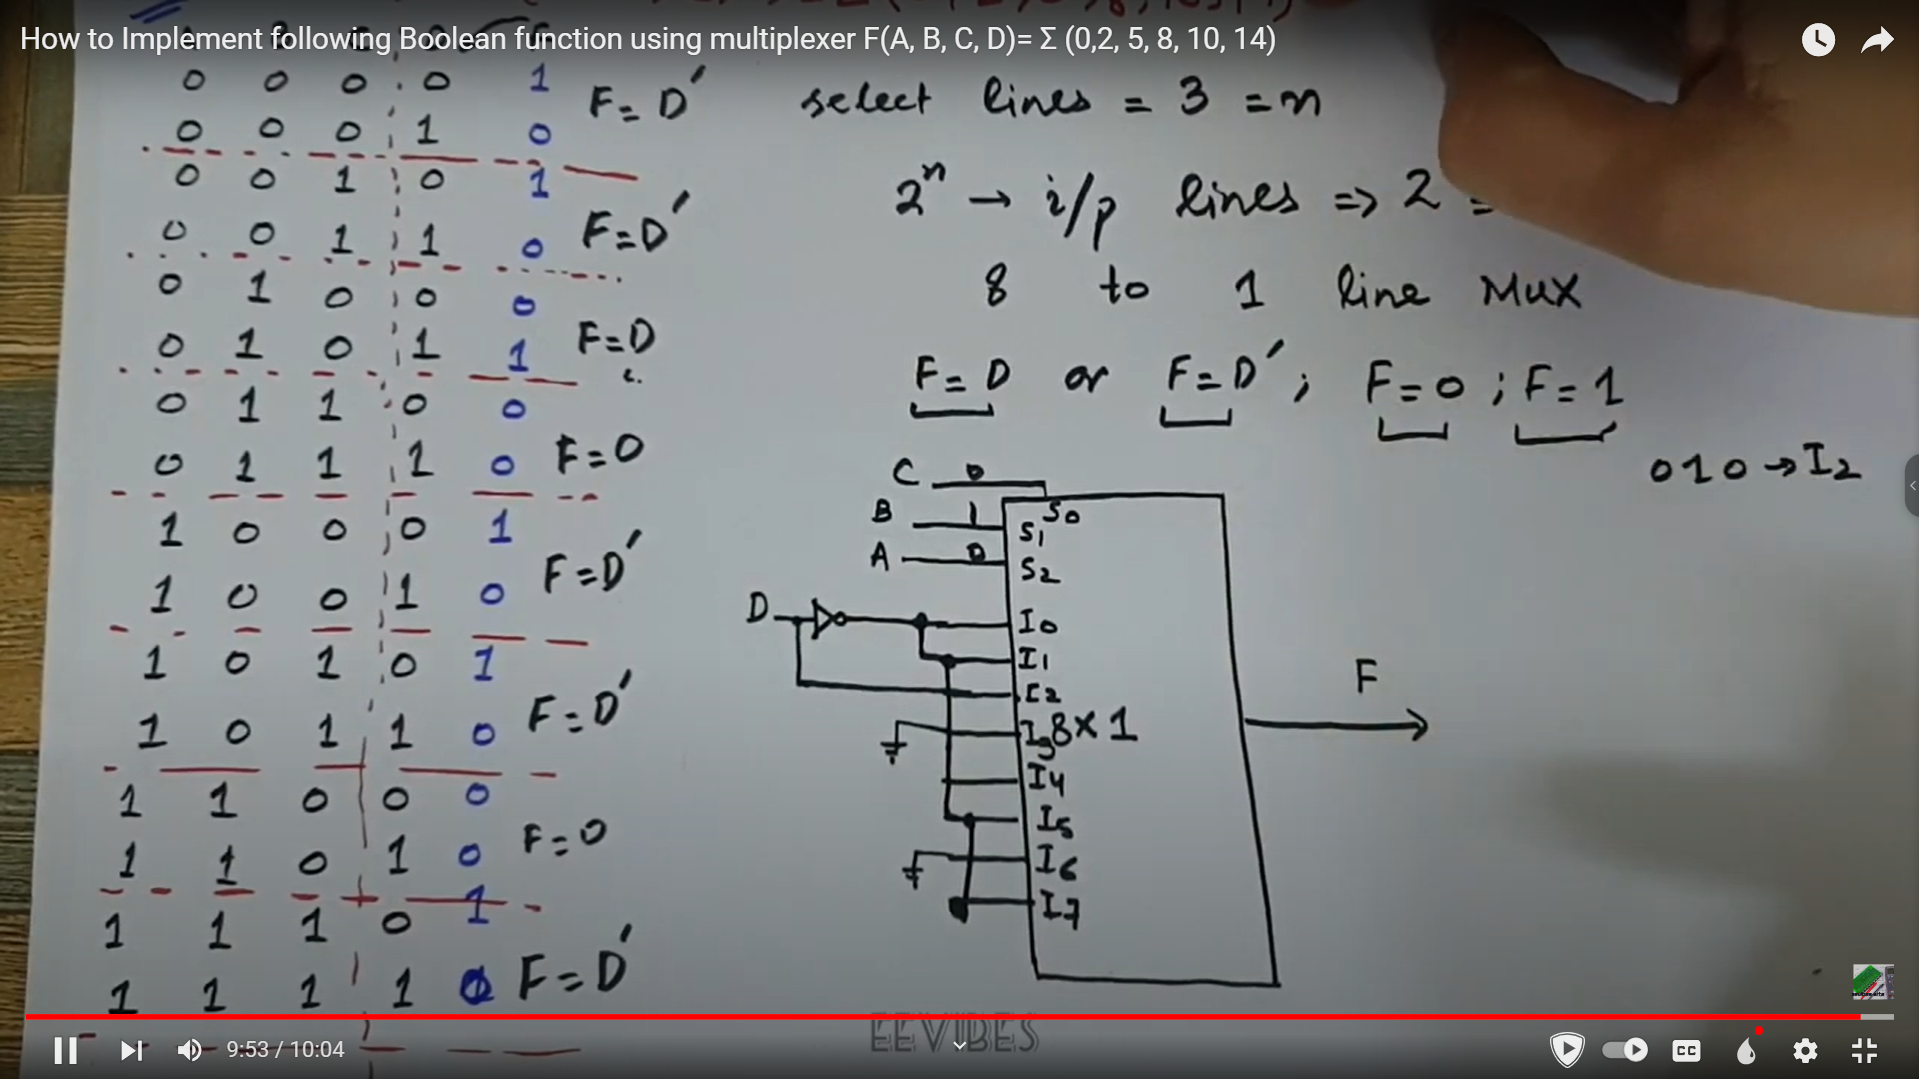 How to Implement following Boolean function using multiplexer F(A, B, C, D)= Σ (0,2, 5, 8, 10, 14)
0 0 0 0 1
F = D'
0 0 0 1 0
0 0 1 0 1
F = D'
0 0 1 1 0
0 1 0 0 0
F = D
0 1 0 1 1
0 1 1 0 0
F = 0
0 1 1 1 0
1 0 0 0 1
F = D'
1 0 0 1 0
1 0 1 0 1
F = D'
1 0 1 1 0
1 1 0 0 0
F = 0
1 1 0 1 0
1 1 1 0 1
F = D'
1 1 1 1 0
select lines = 3 = n
2ⁿ → i/p lines => 2 =
8 to 1 line MUX
F = D or F = D' ; F = 0 ; F = 1
010 → I2
C 0 S0
B 1 S1
A 0 S2
D I0
I1
I2
I3 8x1
I4
I5
I6
I7
F
EEVIBES
9:53 / 10:04
CC